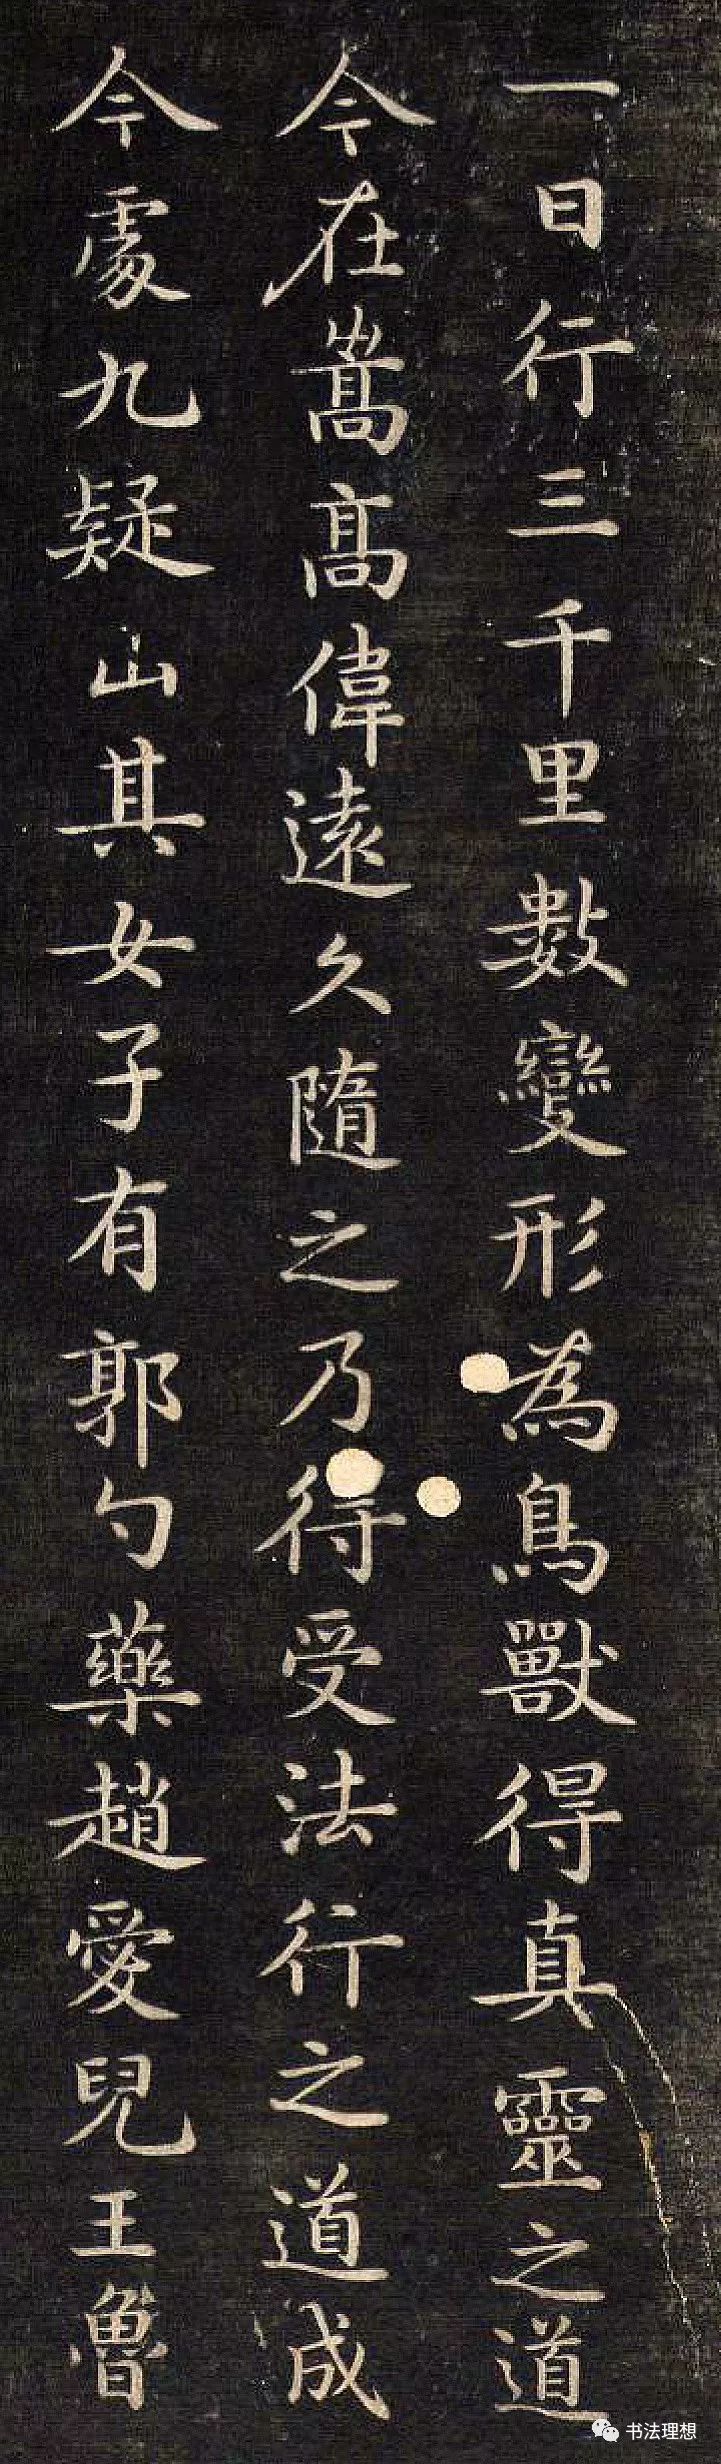 一日行三千里數變形為鳥獸得真靈之道
今在嵩高偉遠久隨之乃得受法行之道成
今處九疑山其女子有郭勺藥趙愛兒王魯
书法理想